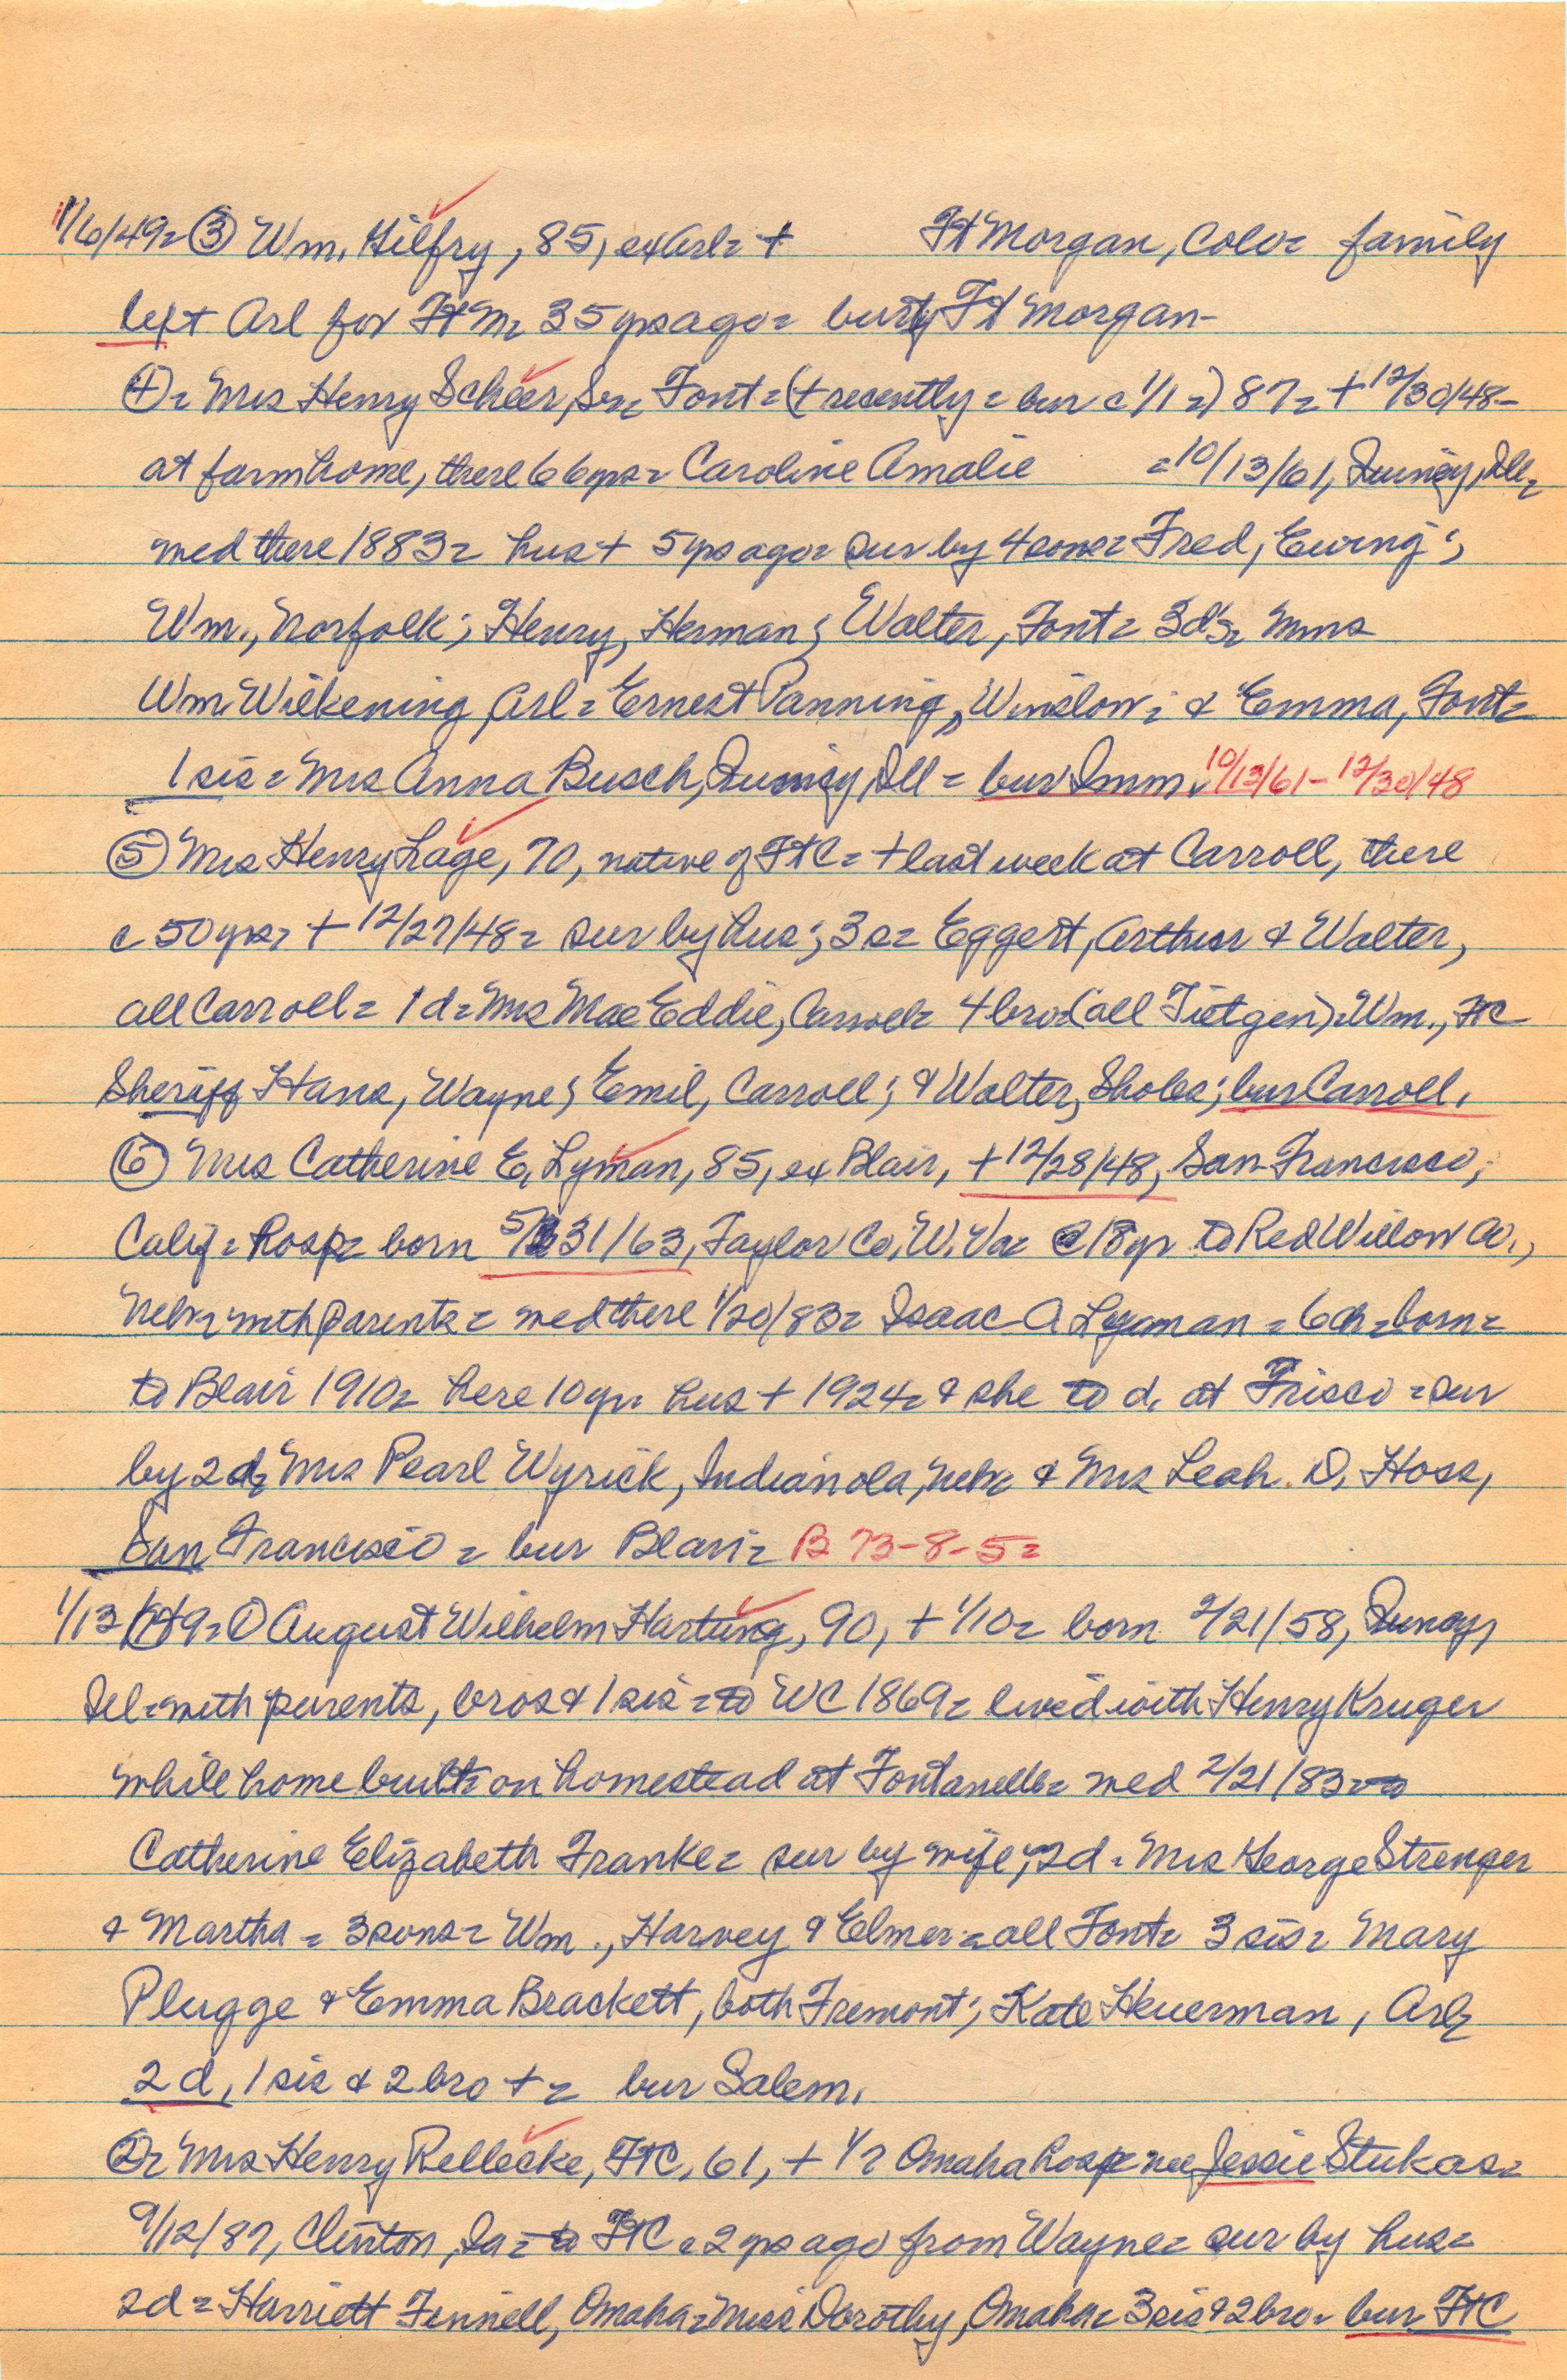 1/6/49= ③ Wm. Gilfry, 85, ex Arl= + Ft Morgan, Colo= family
left Arl for Ft M= 35 yrs ago= bur Ft Morgan-
④= Mrs Henry Scheer, Sr= Font= (+ recently = bur c 1/1 =) 87= + 12/30/48-
at farm home, there 66 yrs= Caroline Amalie =10/13/61, Quincy, Ill=
med there 1883= hus + 5 yrs ago= sur by 4 sons= Fred, Ewing;
Wm., Norfolk; Henry, Herman; Walter, Font= 3 d's= Mmes
Wm. Wilkening, Arl= Ernest Panning, Winslow; & Emma, Font=
1 sis= Mrs Anna Busch, Quincy, Ill= bur Imm. 10/13/61- 12/30/48
⑤ Mrs Henry Lage, 70, native of Ft C= + last week at Carroll, there
c 50 yrs, + 12/27/48= sur by hus; 3 s= Eggert, Arthur & Walter,
all Carroll= 1 d= Mrs Mae Eddie, Carroll= 4 bro= (all Tietgen)= Wm., Ft C
Sheriff Hans, Wayne; Emil, Carroll; & Walter, Sholes; bur Carroll.
⑥ Mrs Catherine E. Lyman, 85, ex Blair, + 12/28/48, San Francisco,
Calif= Hosp= born 5/31/63, Taylor Co, W. Va= @ 18 yr to Red Willow Co.,
Neb= with parents= med there 1/20/83= Isaac A Lyman = 6 ch= born=
to Blair 1910= here 10 yr= hus + 1924= & she to d. at Frisco = sur
by 2 d= Mrs Pearl Wyrick, Indianola, Neb= & Mrs Leah D. Hoss,
San Francisco = bur Blair= B 73-8-5=
1/13/49= ① August Wilhelm Hartung, 90, + 1/10= born 2/21/58, Quincy,
Ill= with parents, bros & 1 sis= to WC 1869= lived with Henry Kruger
while home built= on homestead at Fontanelle= med 2/21/83= to
Catherine Elizabeth Franke= sur by wife; 2 d= Mrs George Strenger
& Martha= 3 sons= Wm., Harvey & Elmer= all Font= 3 sis= Mary
Plugge & Emma Brackett, both Fremont; Kate Heuerman, Arl=
2 d, 1 sis & 2 bro += bur Salem.
②= Mrs Henry Rellecke, Ft C, 61, + 1/7 Omaha hosp= nee Jessie Stukas=
9/12/87, Clinton, Ia= to Ft C = 2 yrs ago from Wayne= sur by hus=
2 d= Harriett Fennell, Omaha= Miss Dorothy, Omaha= 3 sis & 2 bro= bur Ft C